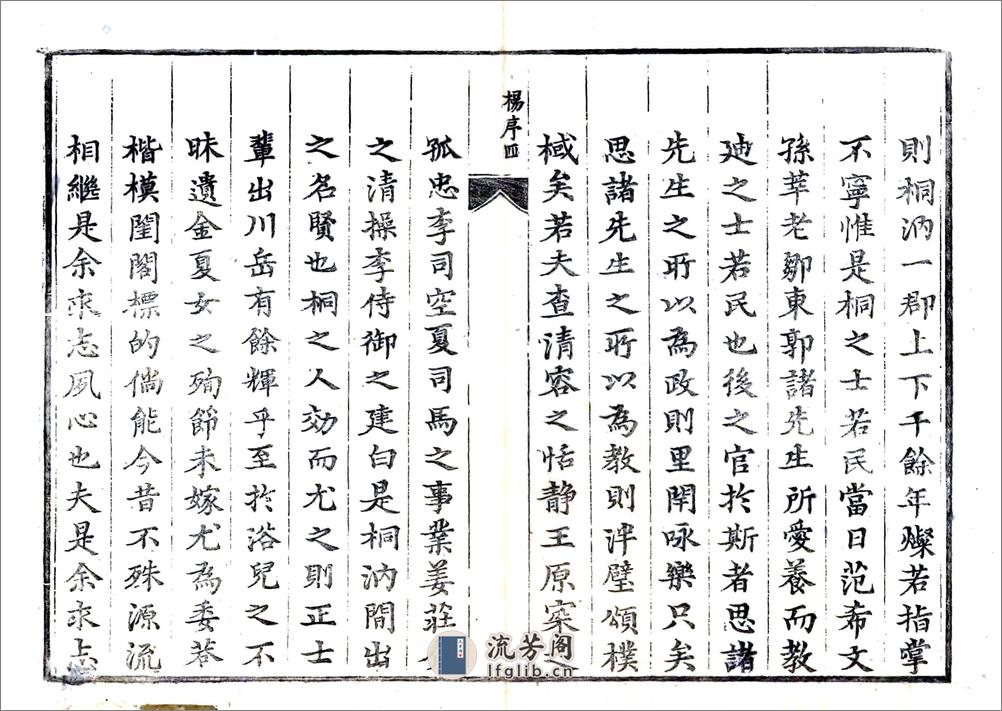 則桐汭一郡上下千餘年燦若指掌
不寧惟是桐之士若民當日范希文
孫莘老鄒東郭諸先生所愛養而教
迪之士若民也後之官於斯者思諸
先生之所以為政則里閈咏樂只矣
思諸先生之所以為教則泮璧頌樸
棫矣若夫查清容之恬静王原寀之
楊序四
孤忠李司空夏司馬之事業姜莊
之清操李侍御之建白是桐汭間出
之名賢也桐之人効而尤之則正士
輩出川岳有餘輝乎至於浴兒之不
昧遺金夏女之殉節未嫁尤為委巷
楷模閨閣標的倘能今昔不殊源流
相繼是余求志夙心也夫是余求志
流芳阁
lfglib.cn